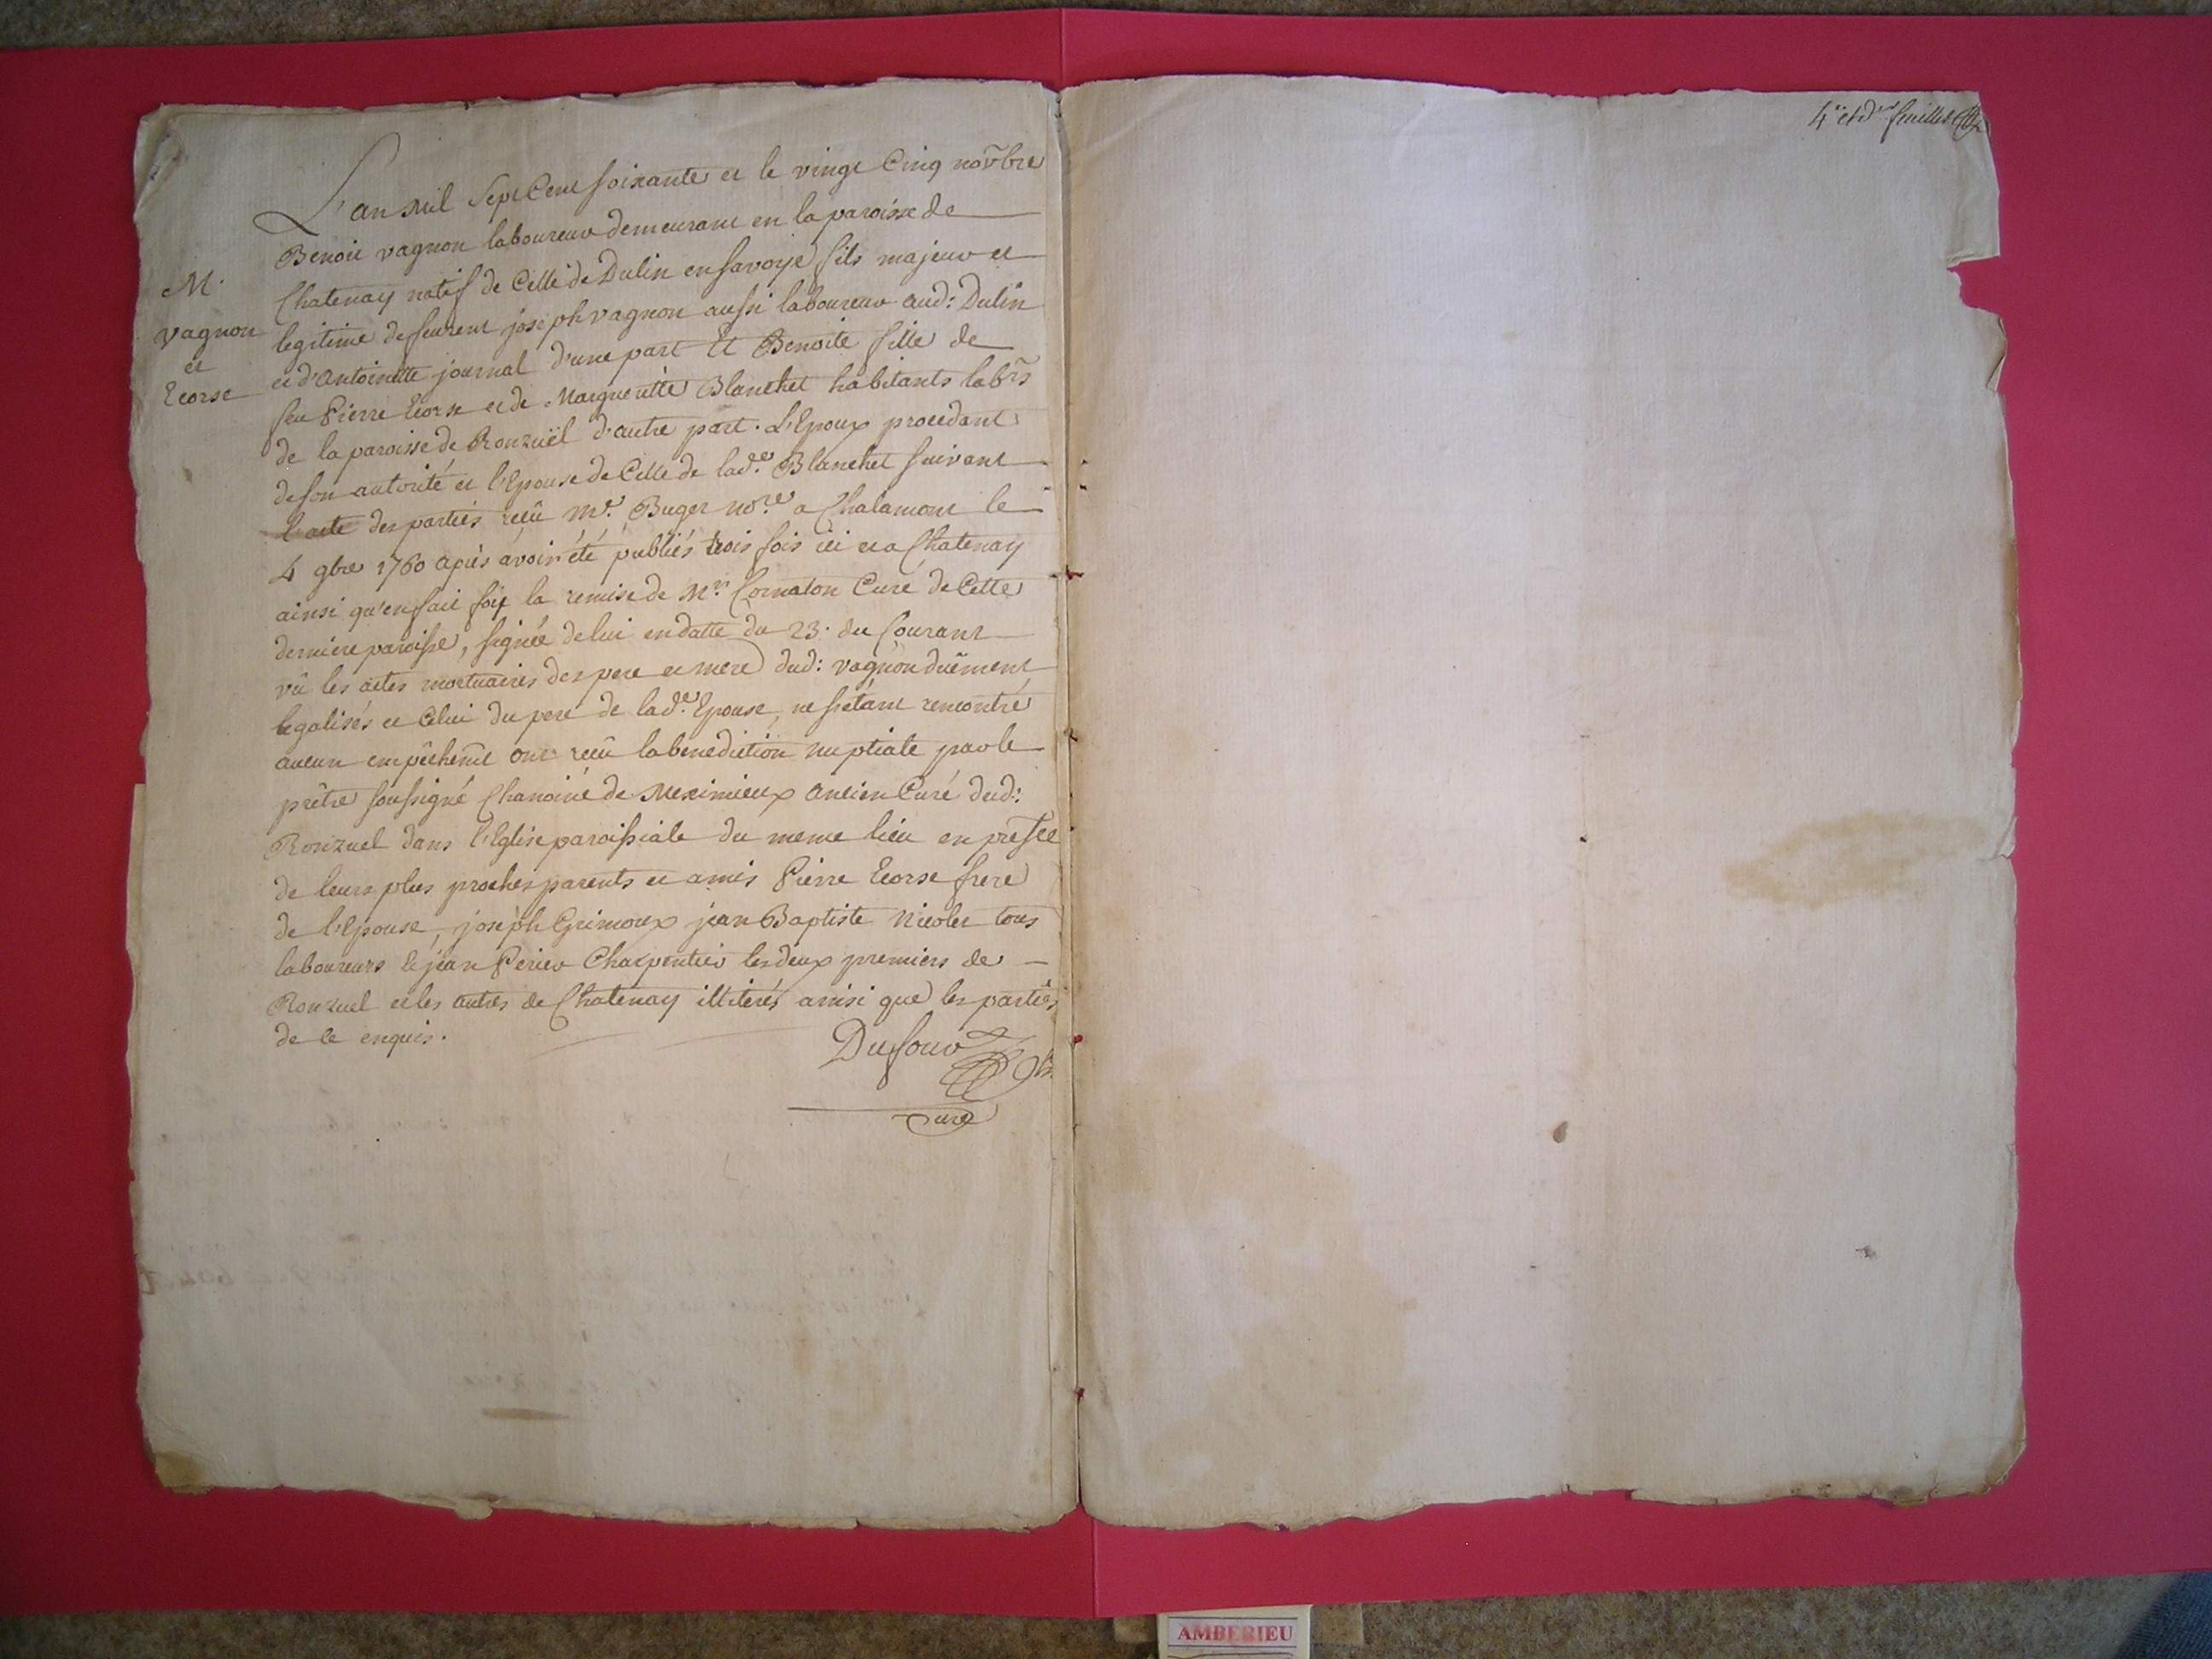 L'an mil Sept Cent soixante et le vingt Cinq nov̄bre
Benoit vagnon laboureur demeurant en la paroisse de
Chatenay natif de Celle de Dulin en Savoye fils majeur et
legitime de joseph vagnon aussi laboureur aud: Dulin
et d'Antoinette journal d'une part Et Benoite fille de
feu Pierre Ecorse et de Margueritte Blanchet habitants lab̄rs
de la paroisse de Ronzuël d'autre part. L'Epoux procedant
de son autorité et l'Epouse de Celle de lad.e Blanchet suivant
l'acte des parties reçû Me. Buger no.re a Chalamont le
4 9bre 1760 après avoir été publiés trois fois ici et a Chatenay
ainsi qu'en fait foix la remise de Mr. Cornaton Curé de Cette
derniere paroisse, signée de lui en datte du 23. du Courant
vû les actes mortuaires des pere et mere dud: vagnon duëment
legalisés et Celui du pere de lad.e Epouse, ne s'etant rencontré
aucun empêchem̄t ont reçû la benediction nuptiale par le
prêtre soussigné Chanoine de Meximieux Ancien Curé dud:
Ronzuel dans l'Eglise paroissiale du meme lieu en prēsce
de leurs plus proches parents et amis Pierre Ecorse frere
de l'Epouse, joseph Grimoux jean Baptiste Nicolet tous
laboureurs Et jean Perier Charpentier les deux premiers de
Ronzuel et les autres de Chatenay illiterés ainsi que les parties
de ce enquis.
Dufour
Curé
M.
vagnon
et
Ecorse
4e et der feuillet
AMBERIEU